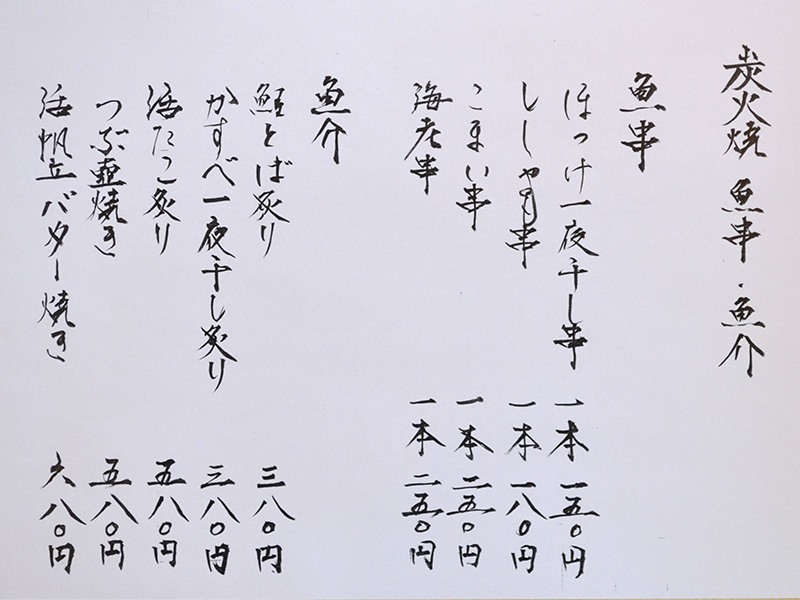 炭火焼 魚串・魚介
魚串
ほっけ一夜干し串 一本 一五〇円
ししゃも串 一本 一八〇円
こまい串 一本 二五〇円
海老串 一本 二五〇円
魚介
鮭とば炙り 三八〇円
かすべ一夜干し炙り 三八〇円
活たこ炙り 五八〇円
つぶ壺焼き 五八〇円
活帆立バター焼き 六八〇円